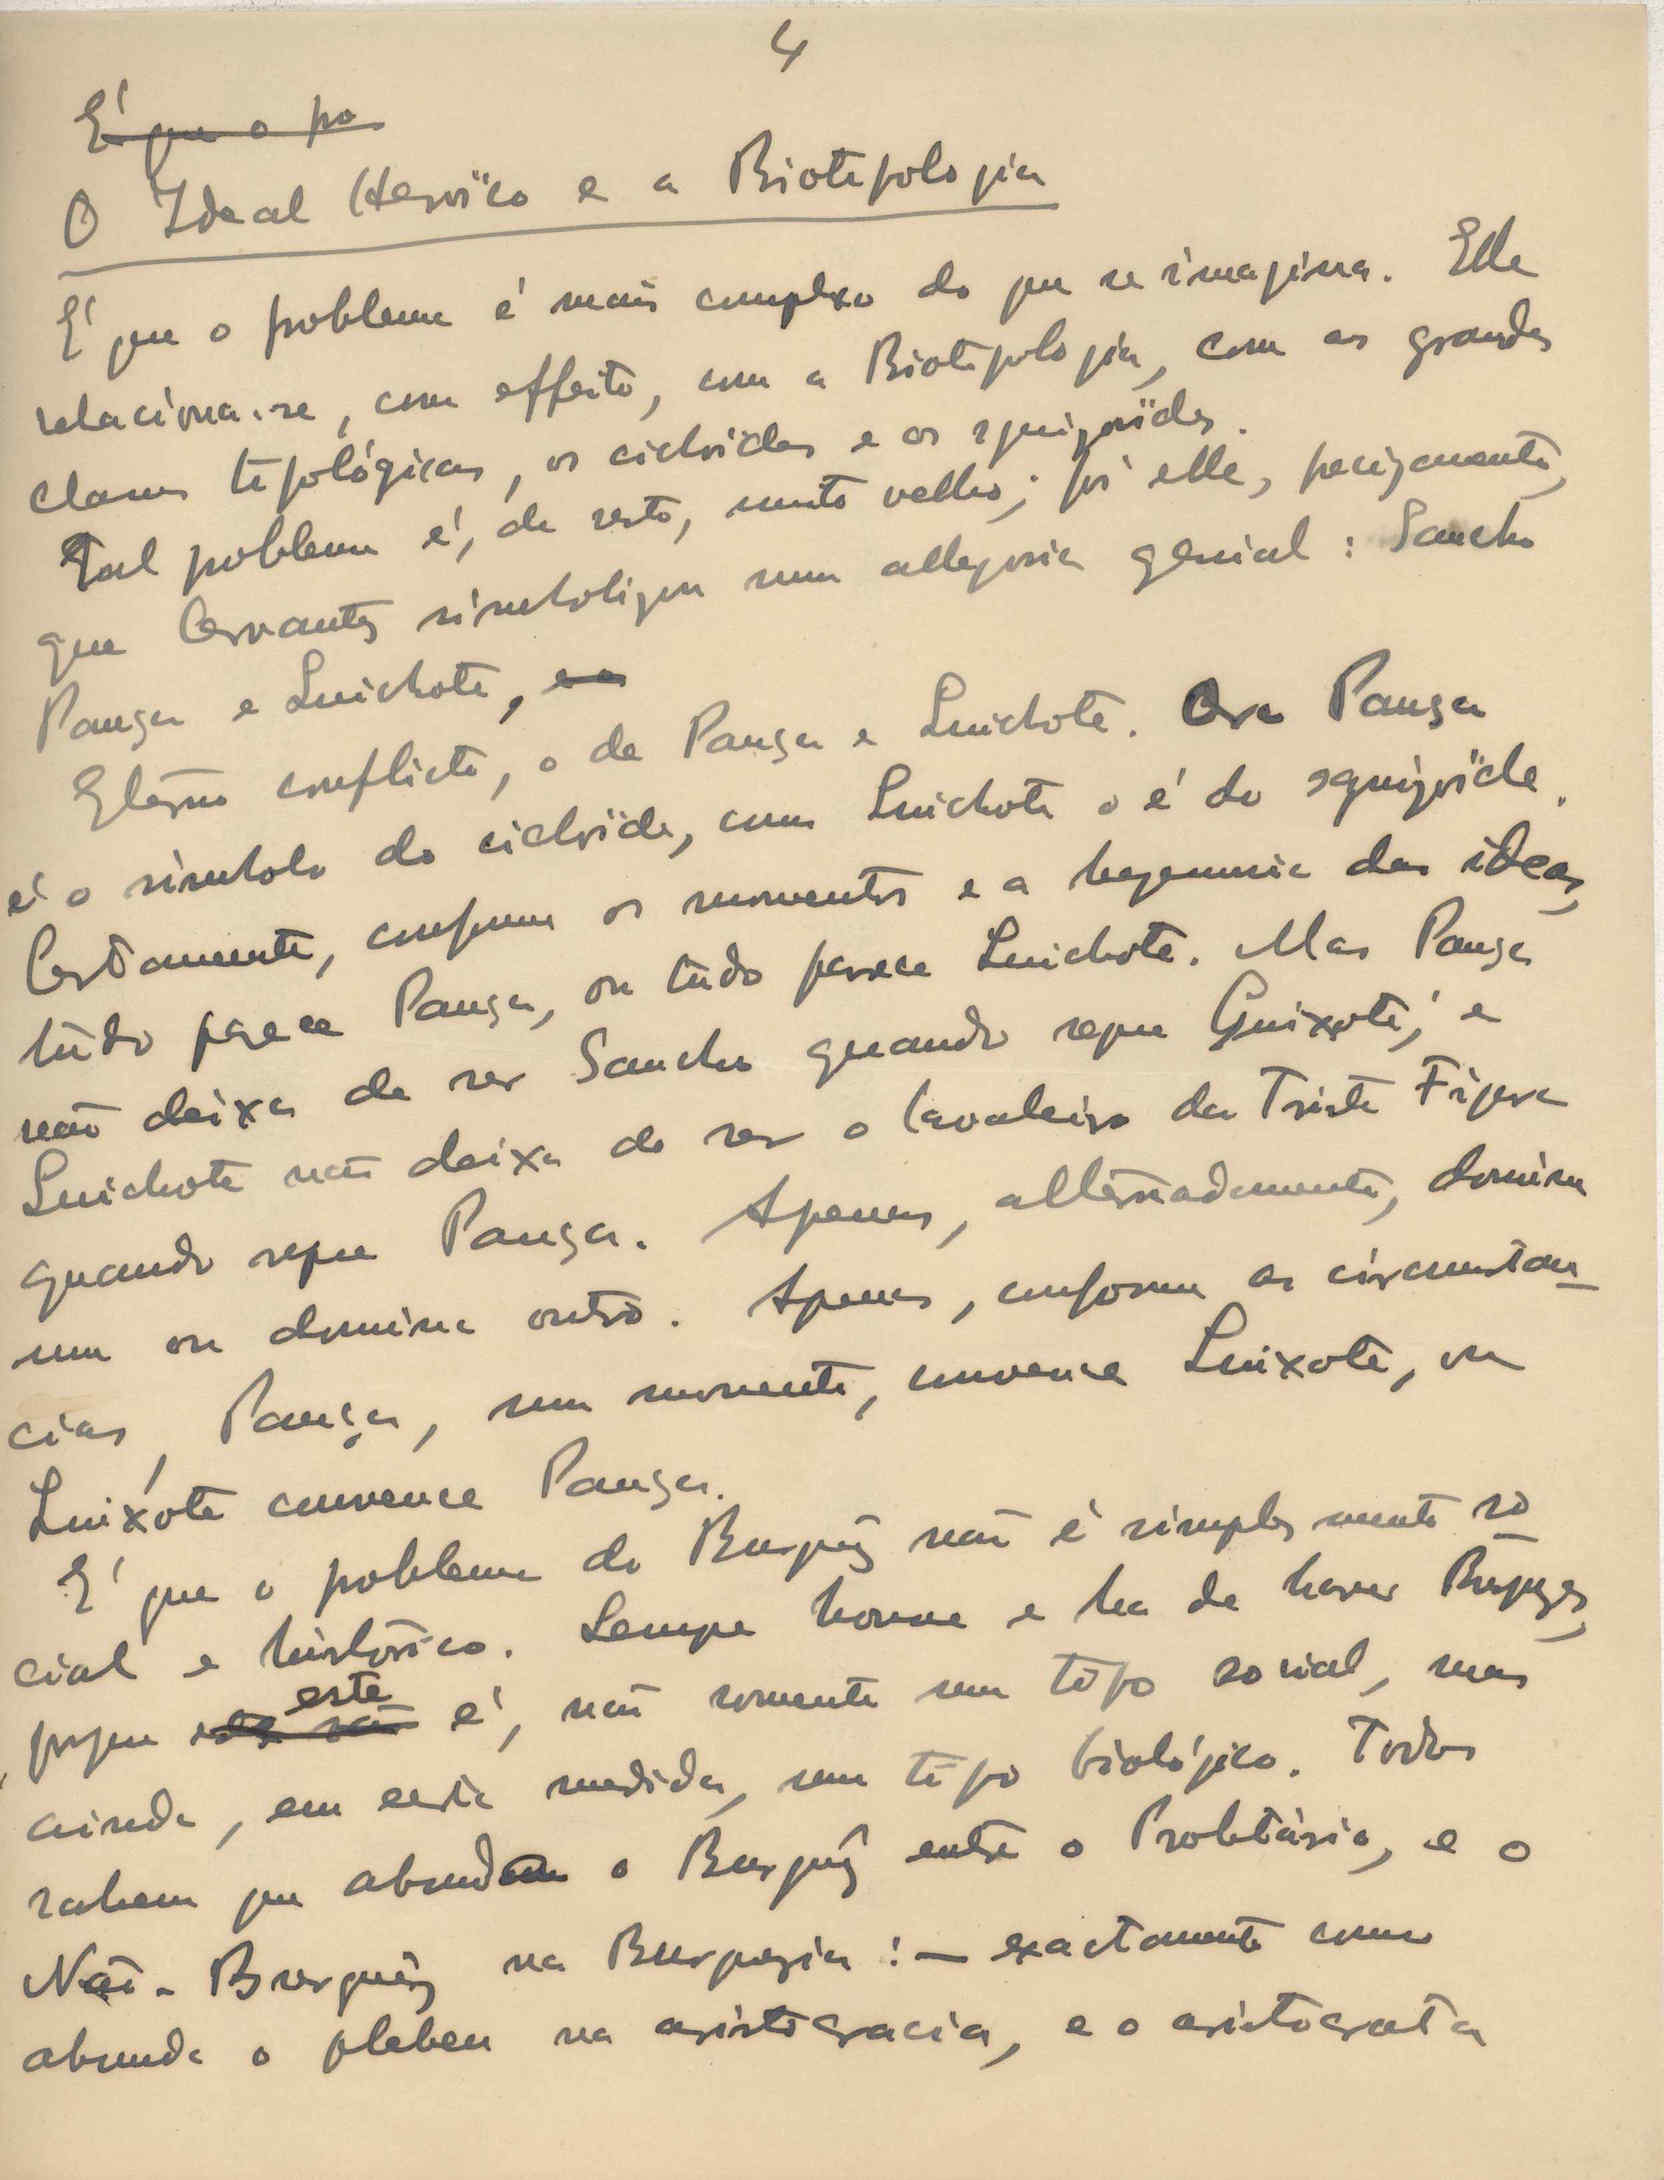 4
É que o pro
O Ideal Heroïco e a Biotipologia
É que o problema é mais complexo do que se imagina. Elle
relaciona-se, com effeito, com a Biotipologia, com as grandes
classes tipológicas, os cicloïdes e os squizoïdes.
Tal problema é, de resto, muito velho; foi elle, precizamente,
que Cervantes simbolizou numa allegoria genial: Sancho
Pança e Quichote, e o
Eterno conflicto, o de Pança e Quichote. Ora Pança
é o simbolo do cicloïde, como Quichote o é do squizoïde.
Certamente, conforme os momentos e a hegemonia das ideas,
tudo parece Pança, ou tudo parece Quichote. Mas Pança
não deixa de ser Sancho quando segue Quixote; e
Quichote não deixa de ser o Cavaleiro da Triste Figura
quando segue Pança. Apenas, alternadamente, domina
um ou domina outro. Apenas, conforme as circunstan-
cias, Pança, num momento, convence Quixote, ou
Quixote convence Pança.
É que o problema do Burguês não é simplesmente so-
cial e histórico. Sempre houve e ha de haver Burgueses,
porque este é, não somente um tipo social, mas
ainda, em certa medida, um tipo biológico. Todos
sabem que abunda o Burguês entre o Proletário, e o
Não-Burguês na Burguezia: — exactamente como
abunda o plebeu na aristocracia, e o aristocrata